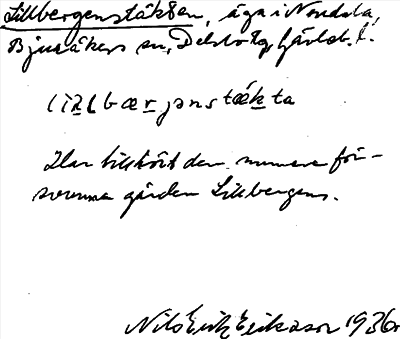 Lillbergenstäkten, äga i Norrdala,
Bjuråkers sn, Delsbo tg, Gävleb. l.
Har tillhört den numera för-
svunna gården Lillbergens.
Nils Erik Eriksson 1936